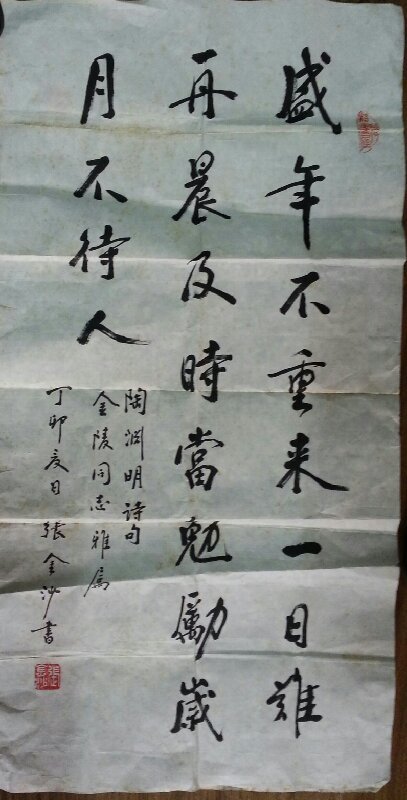 盛年不重来一日難
再晨及時當勉勵歲
月不待人
陶淵明詩句
金陵同志雅属
丁卯夏日張金沙書